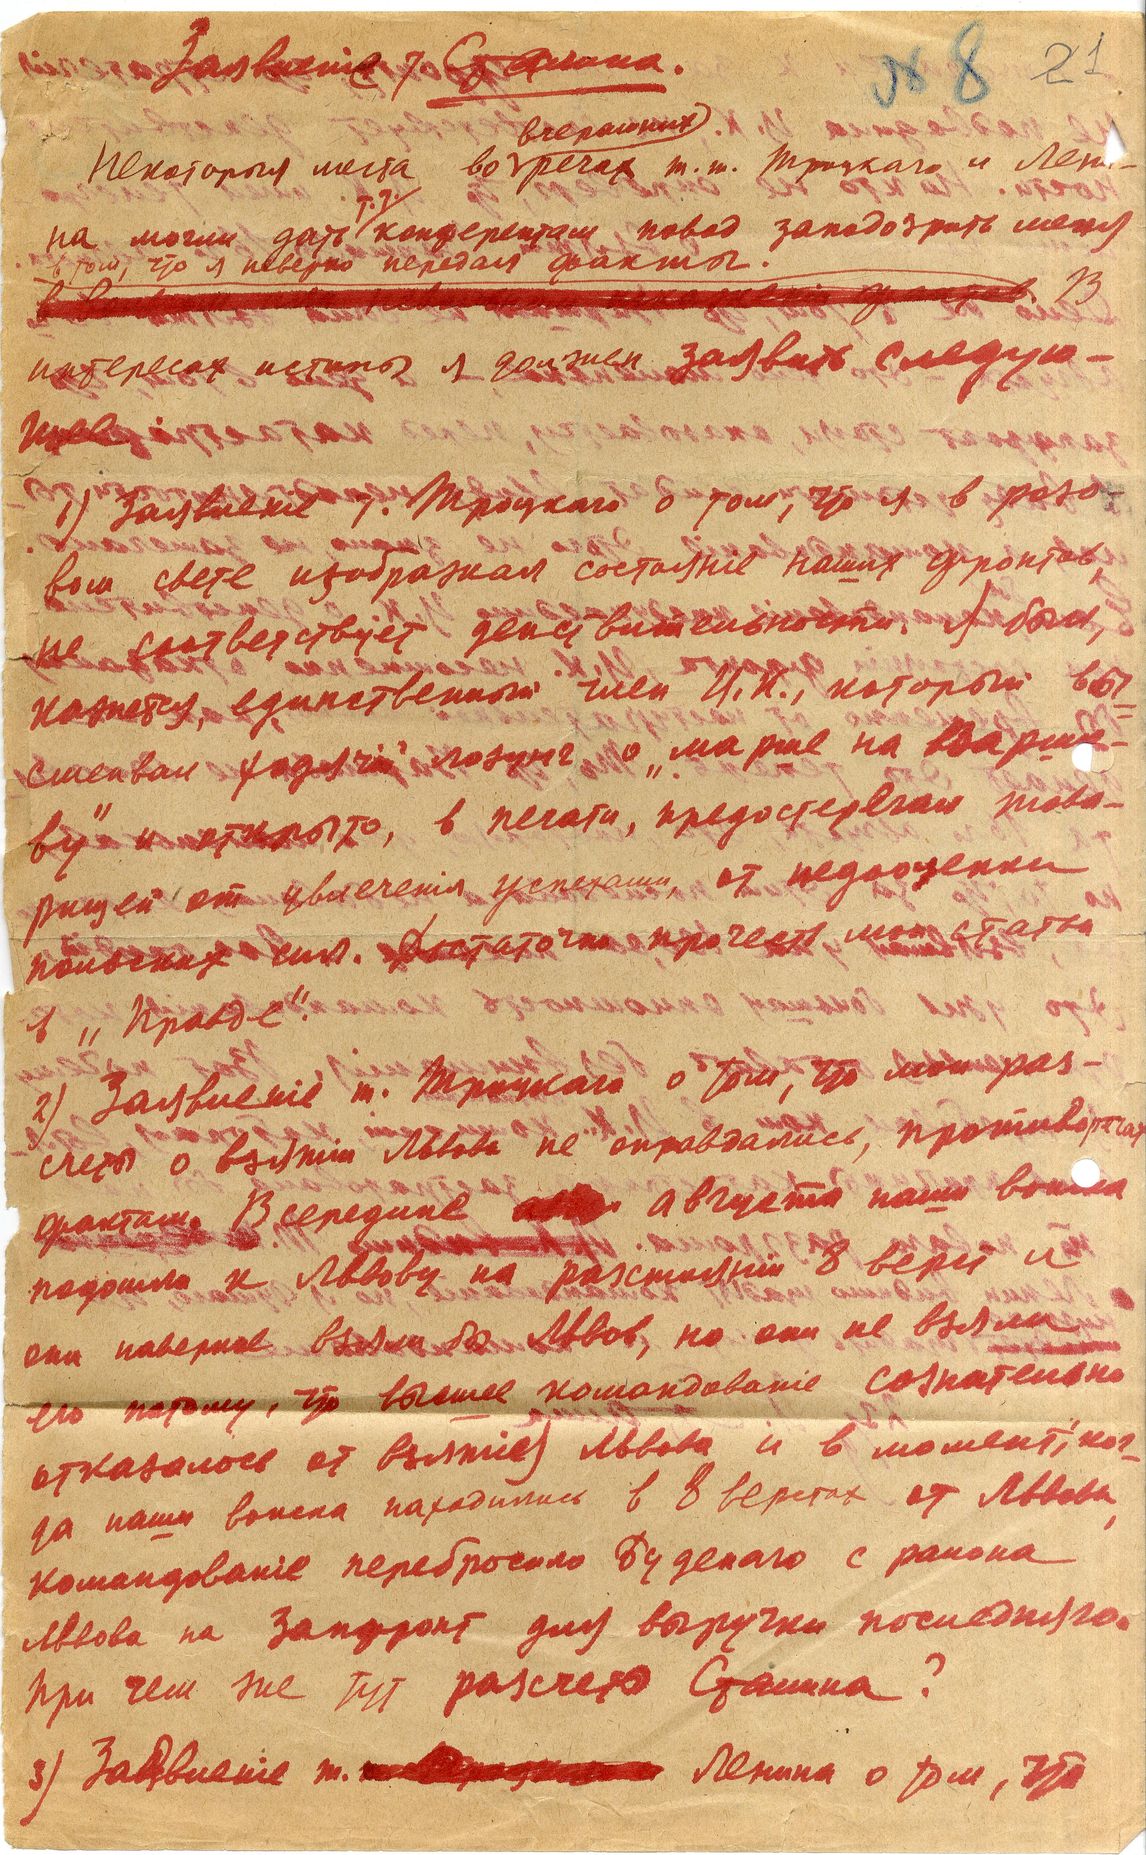 Заявление т. Сталина.
№ 8 21
вчерашних
Некоторыя места во речах т.т. Троцкаго и Лени-
т.т.
на могли дать конферентам повод заподозрить меня
в том, что я неверно передал факты.
В
интересах истины я должен заявить следую-
щее:
1) Заявление т. Троцкаго о том, что я в розо-
вом свете изображал состояніе наших фронтов,
не соответствует действительности. Я был,
кажется, единственный член Ц.К., который вы-
смеивал ходячій лозунг о „марше на Варша-
ву" и открыто, в печати, предостерегал това-
рищей от увлеченія успехами, от недооценки
польских сил. Достаточно прочесть мои статьи
в „Правде".
2) Заявленіе т. Троцкаго о том, что мои раз-
счеты о взятіи Львова не оправдались, противоречат
фактам. В середине августа наши войска
подошли к Львову на разстояніи 8 верст и
они наверное взяли бы Львов, но они не взяли
его потому, что высшее командованіе сознательно
отказалось от взятія Львова и в момент, ког-
да наши войска находились в 8 верстах от Львова,
командованіе перебросило Буденаго с района
Львова на Запфронт для выручки последняго.
При чем же тут разсчеты Сталина?
3) Заявленіе т. Ленина о том, что